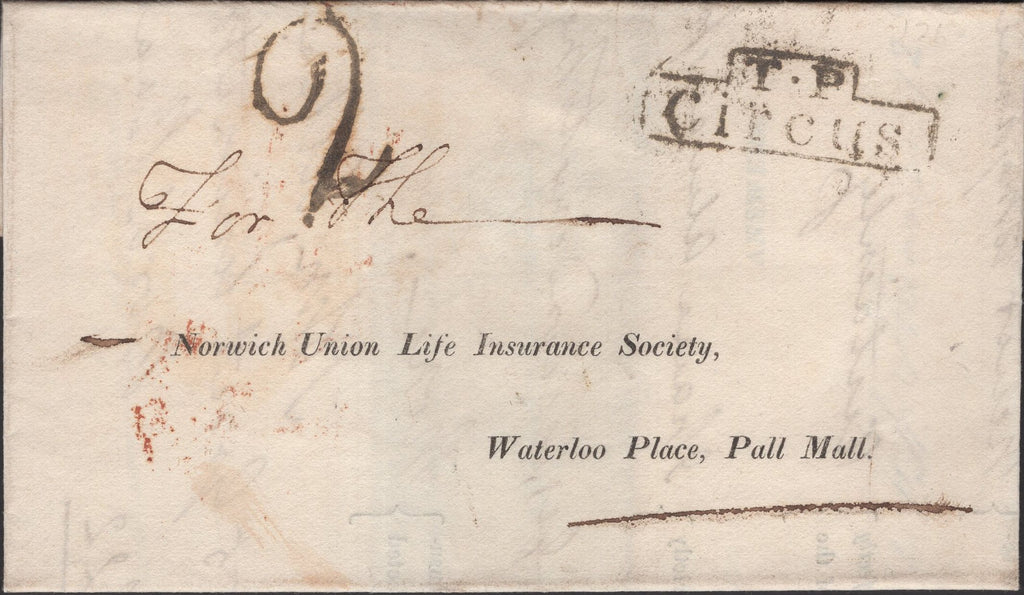 2
T.P
Circus
For The
Norwich Union Life Insurance Society,
Waterloo Place, Pall Mall.